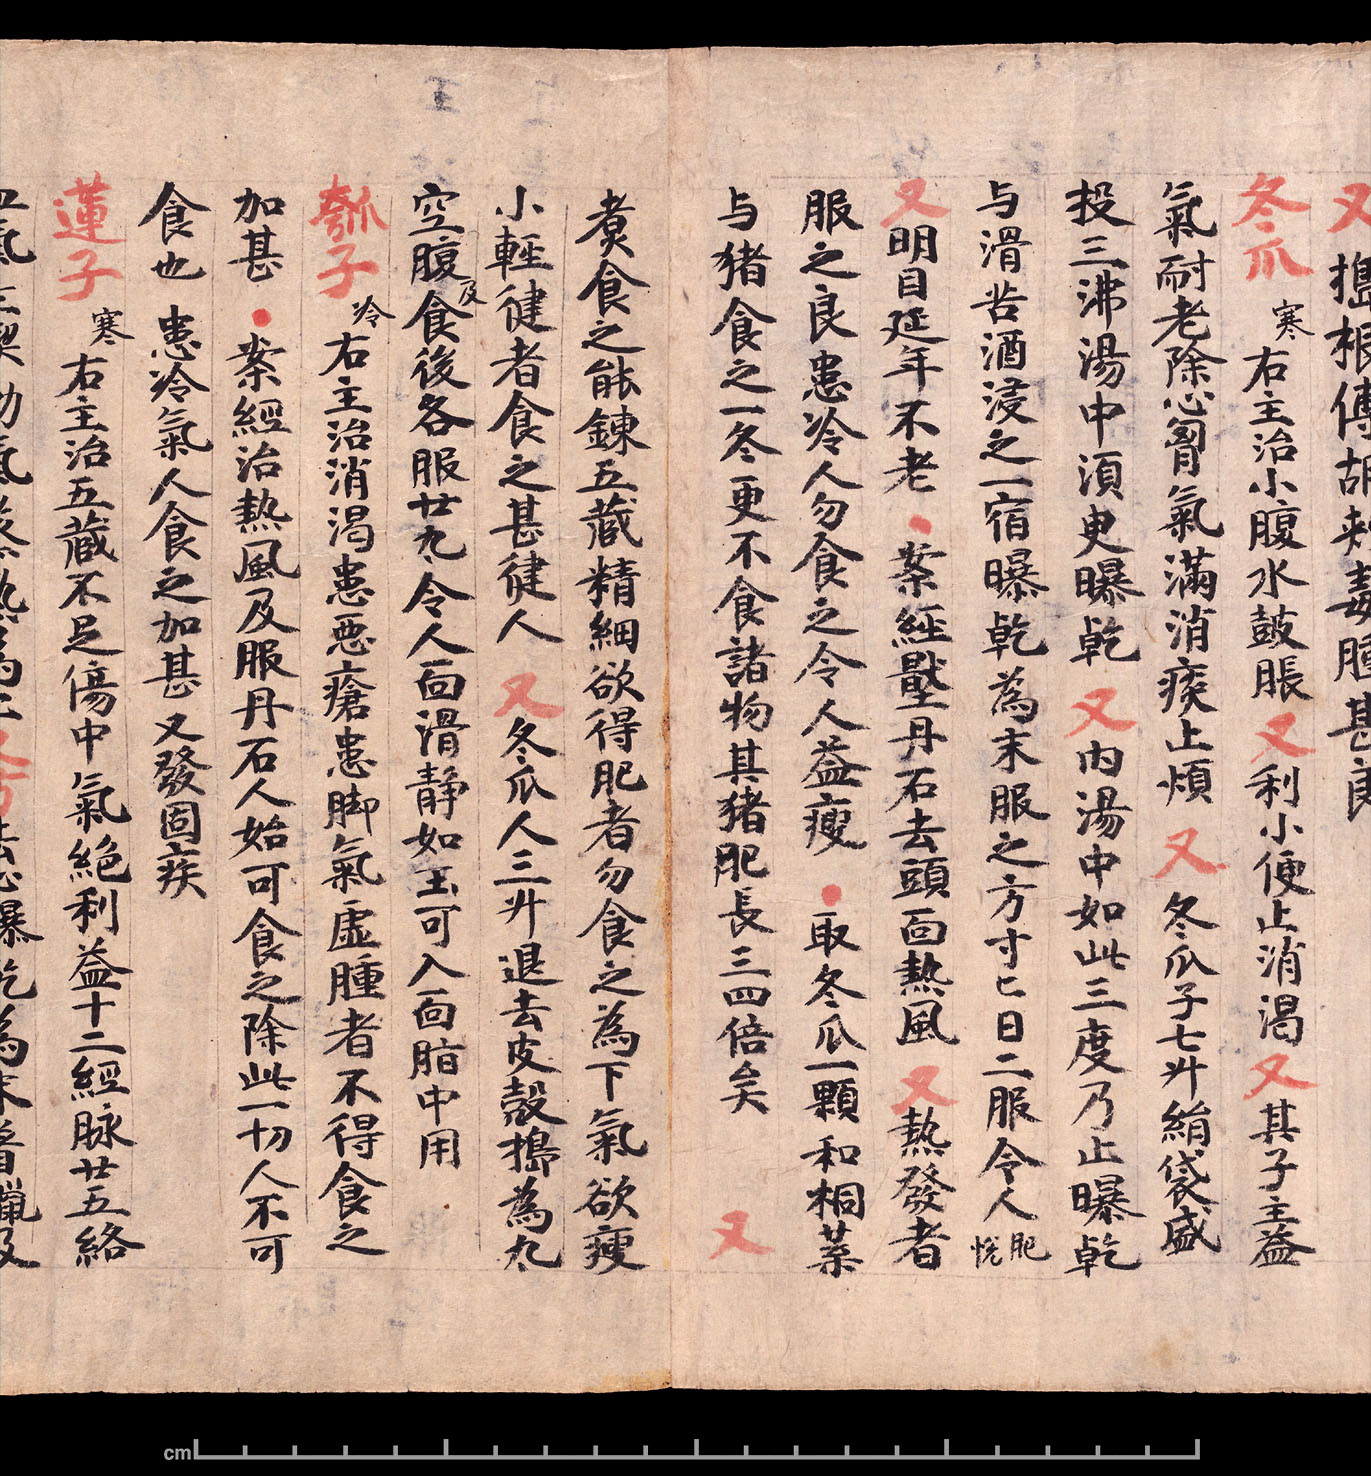 又搗根傅胡刺毒腫甚良
冬瓜寒右主治小腹水鼓脹又利小便止消渴又其子主益
氣耐老除心胷氣滿消痰止煩又冬瓜子七升絹袋盛
投三沸湯中須臾曝乾又內湯中如此三度乃止曝乾
与滑苦酒浸之一宿曝乾為末服之方寸匕日二服令人肥悅
又明目延年不老案經壓丹石去頭面熱風又熱發者
服之良患冷人勿食之令人益瘦取冬瓜一顆和桐葉
与猪食之一冬更不食諸物其猪肥長三四倍矣又
煑食之能鍊五藏精細欲得肥者勿食之為下氣欲瘦
小輕健者食之甚健人又冬瓜人三升退去皮殼搗為丸
空腹及食後各服廿九令人面滑静如玉可入面脂中用
瓠子冷右主治消渴患惡瘡患脚氣虛腫者不得食之
加甚案經治熱風及服丹石人始可食之除此一切人不可
食也患冷氣人食之加甚又發固疾
蓮子寒右主治五藏不足傷中氣絕利益十二經脉廿五絡